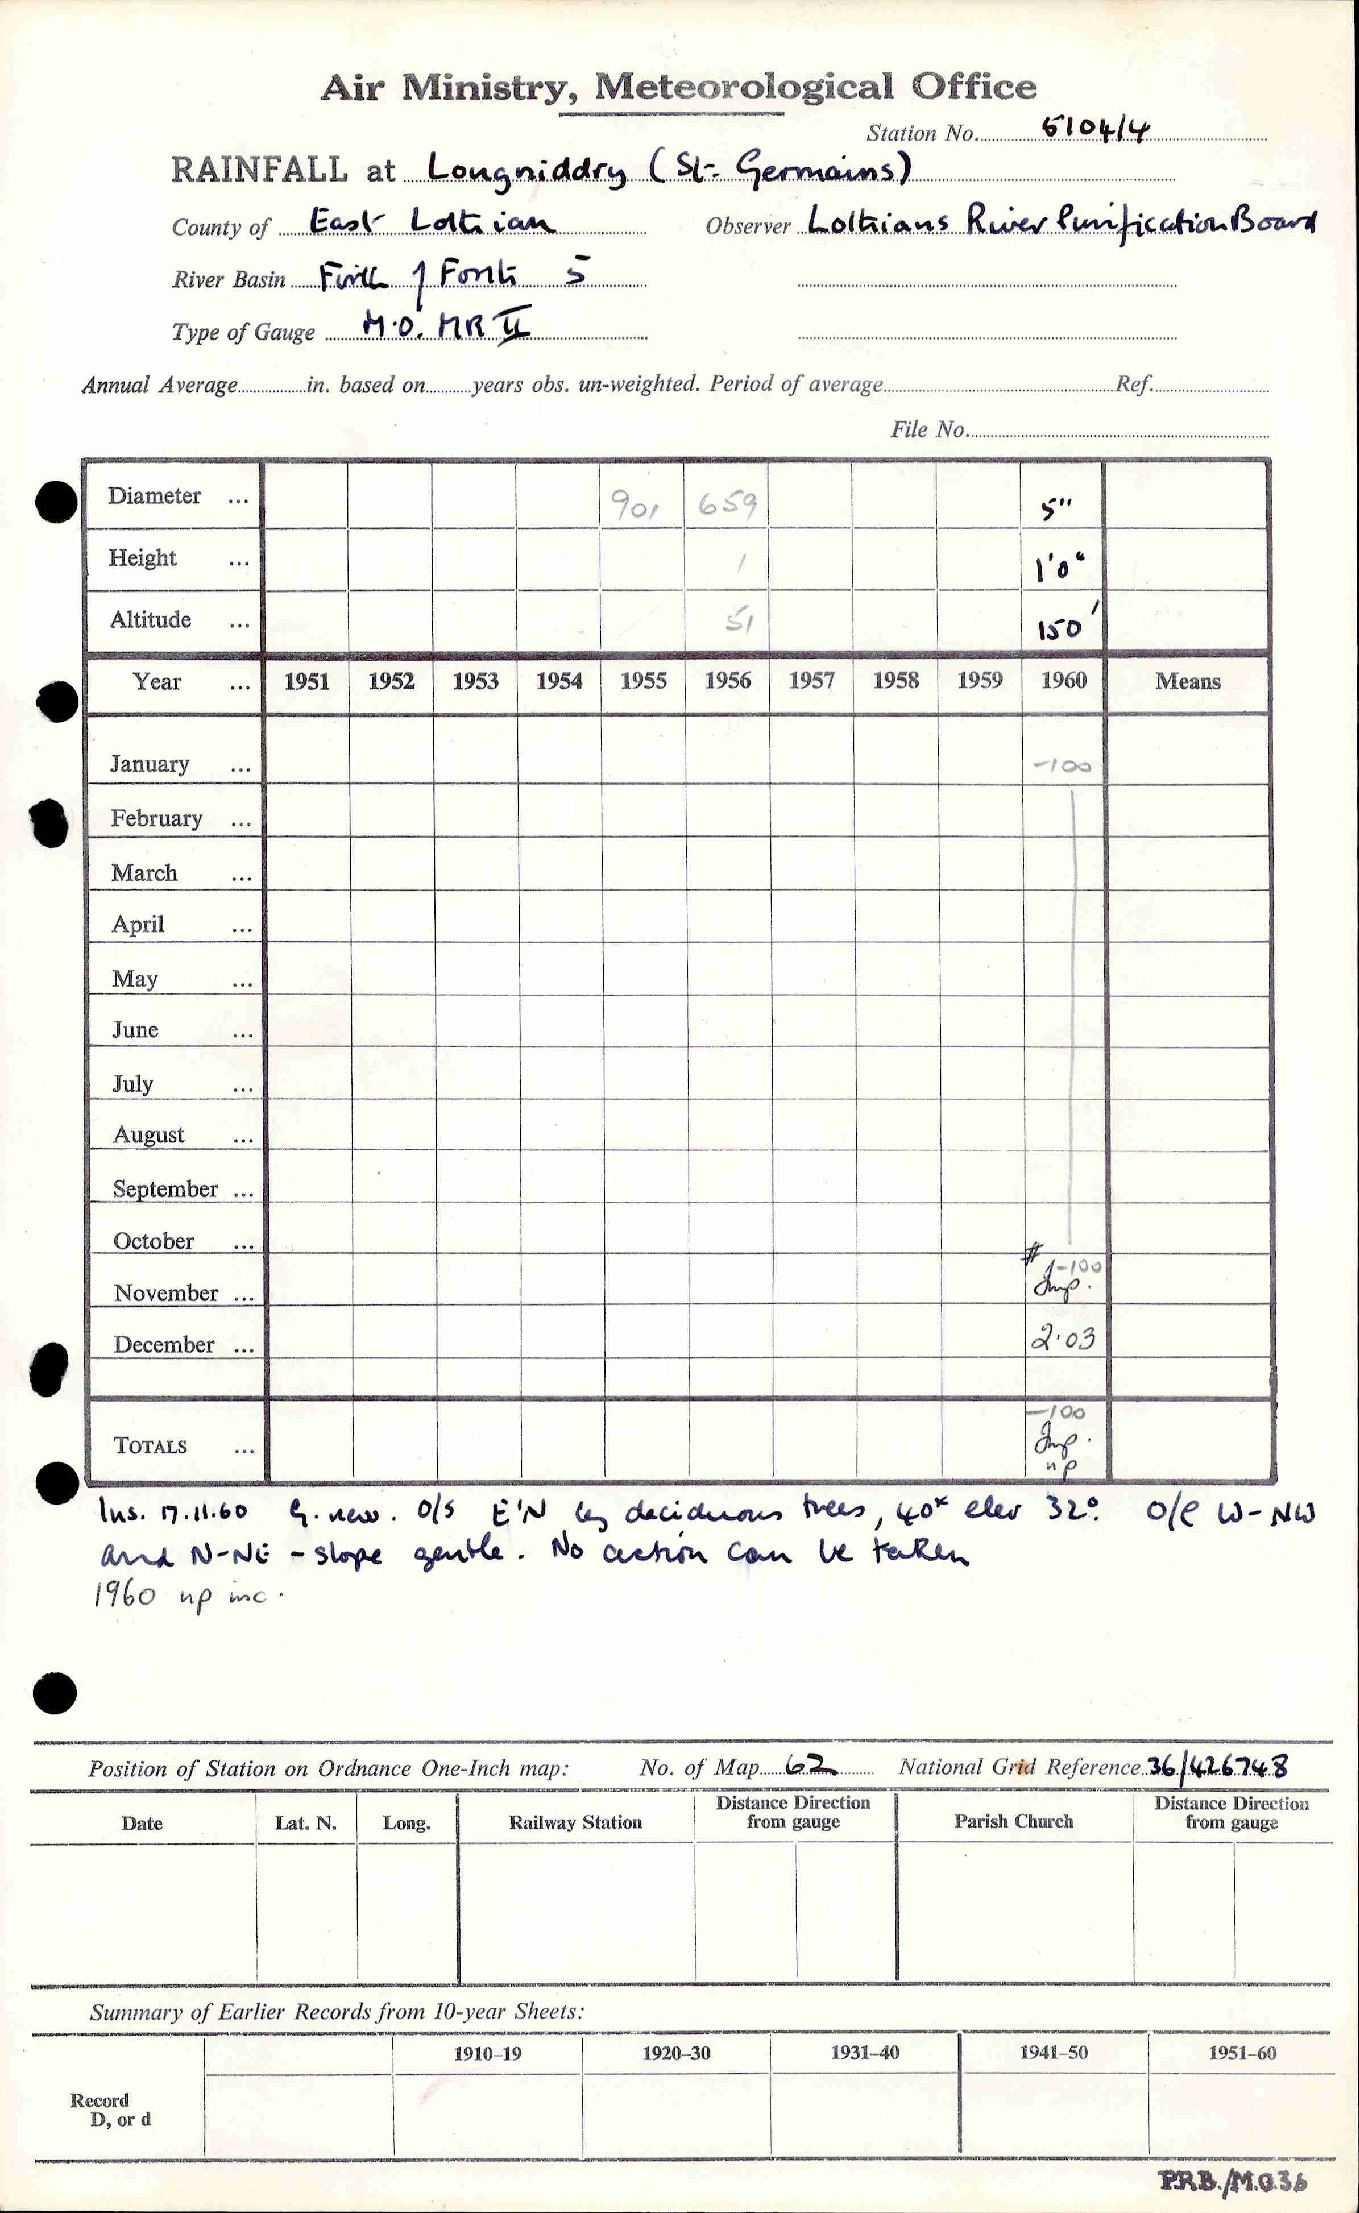 Air Ministry, Meteorological Office
Station No. 5104/4
RAINFALL at Longniddry (St. Germains)
County of East Lothian Observer Lothians River Purification Board
River Basin Firth of Forth 5
Type of Gauge M.O. MK II
Annual Average in. based on years obs. un-weighted. Period of average Ref.
File No.
Diameter ... 901 659 5"
Height ... 1 1'0"
Altitude ... 51 150'
Year ... 1951 1952 1953 1954 1955 1956 1957 1958 1959 1960 Means
January ... -100
February ...
March ...
April ...
May ...
June ...
July ...
August ...
September ...
October ...
# -100
November ... Imp.
December ... 2.03
-100
TOTALS ... Imp.
np
Ins. 17.11.60 G. new. O/S E'N by deciduous trees, 40x elev 32°. O/E W-NW
and N-NE - slope gentle. No action can be taken
1960 np inc.
Position of Station on Ordnance One-Inch map: No. of Map 62 National Grid Reference 36/426748
Date Lat. N. Long. Railway Station Distance Direction from gauge Parish Church Distance Direction from gauge
Summary of Earlier Records from 10-year Sheets:
1910-19 1920-30 1931-40 1941-50 1951-60
Record
D, or d
P.R.B./M.O.36